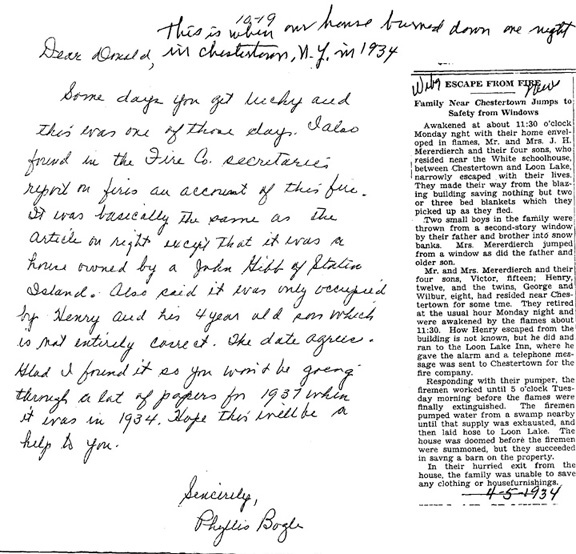 10-19
This is when our house burned down one night
in Chestertown, N.Y. in 1934
Dear Donald,
Some days you get lucky and
this was one of those days. I also
found in the Fire Co. secretaries
report on fires an account of this fire.
It was basically the same as the
article on right except that it was a
house owned by a John Hibb of Staten
Island. Also said it was only occupied
by Henry and his 4 year old son which
is not entirely correct. The date agrees.
Glad I found it so you won't be going
through a lot of papers for 1937 when
it was in 1934. Hope this will be a
help to you.
Sincerely,
Phyllis Bogle
ESCAPE FROM FIRE
Family Near Chestertown Jumps to
Safety from Windows
Awakened at about 11:30 o'clock
Monday nght with their home envel-
oped in flames, Mr. and Mrs. J. H.
Mererdierch and their four sons, who
resided near the White schoolhouse,
between Chestertown and Loon Lake,
narrowly escaped with their lives.
They made their way from the blaz-
ing building saving nothing but two
or three bed blankets which they
picked up as they fled.
Two small boys in the family were
thrown from a second-story window
by their father and brother into snow
banks. Mrs. Mererdierch jumped
from a window as did the father and
older son.
Mr. and Mrs. Mererdierch and their
four sons, Victor, fifteen; Henry,
twelve, and the twins, George and
Wilbur, eight, had resided near Ches-
tertown for some time. They retired
at the usual hour Monday night and
were awakened by the flames about
11:30. How Henry escaped from the
building is not known, but he did and
ran to the Loon Lake Inn, where he
gave the alarm and a telephone mes-
sage was sent to Chestertown for the
fire company.
Responding with their pumper, the
firemen worked until 5 o'clock Tues-
day morning before the flames were
finally extinguished. The firemen
pumped water from a swamp nearby
until that supply was exhausted, and
then laid hose to Loon Lake. The
house was doomed before the firemen
were summoned, but they succeeded
in savng a barn on the property.
In their hurried exit from the
house, the family was unable to save
any clothing or housefurnishings.
4-5-1934